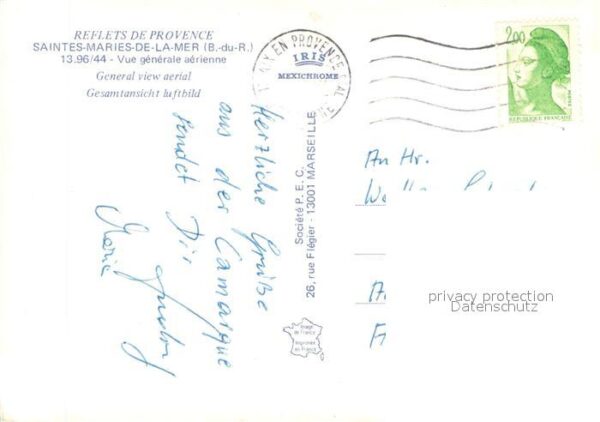 REFLETS DE PROVENCE
SAINTES-MARIES-DE-LA-MER (B.-du-R.)
13.96/44 - Vue générale aérienne
General view aerial
Gesamtansicht luftbild
AIX EN PROVENCE
IRIS
MEXICHROME
2,00
REPUBLIQUE FRANÇAISE
Herzliche Grüße
aus der Camargue
sendet Dir
Maria
Société P.E.C.
26, rue Flégier - 13001 MARSEILLE
Image
de France
Imprimé
en France
An Hr.
privacy protection
Datenschutz